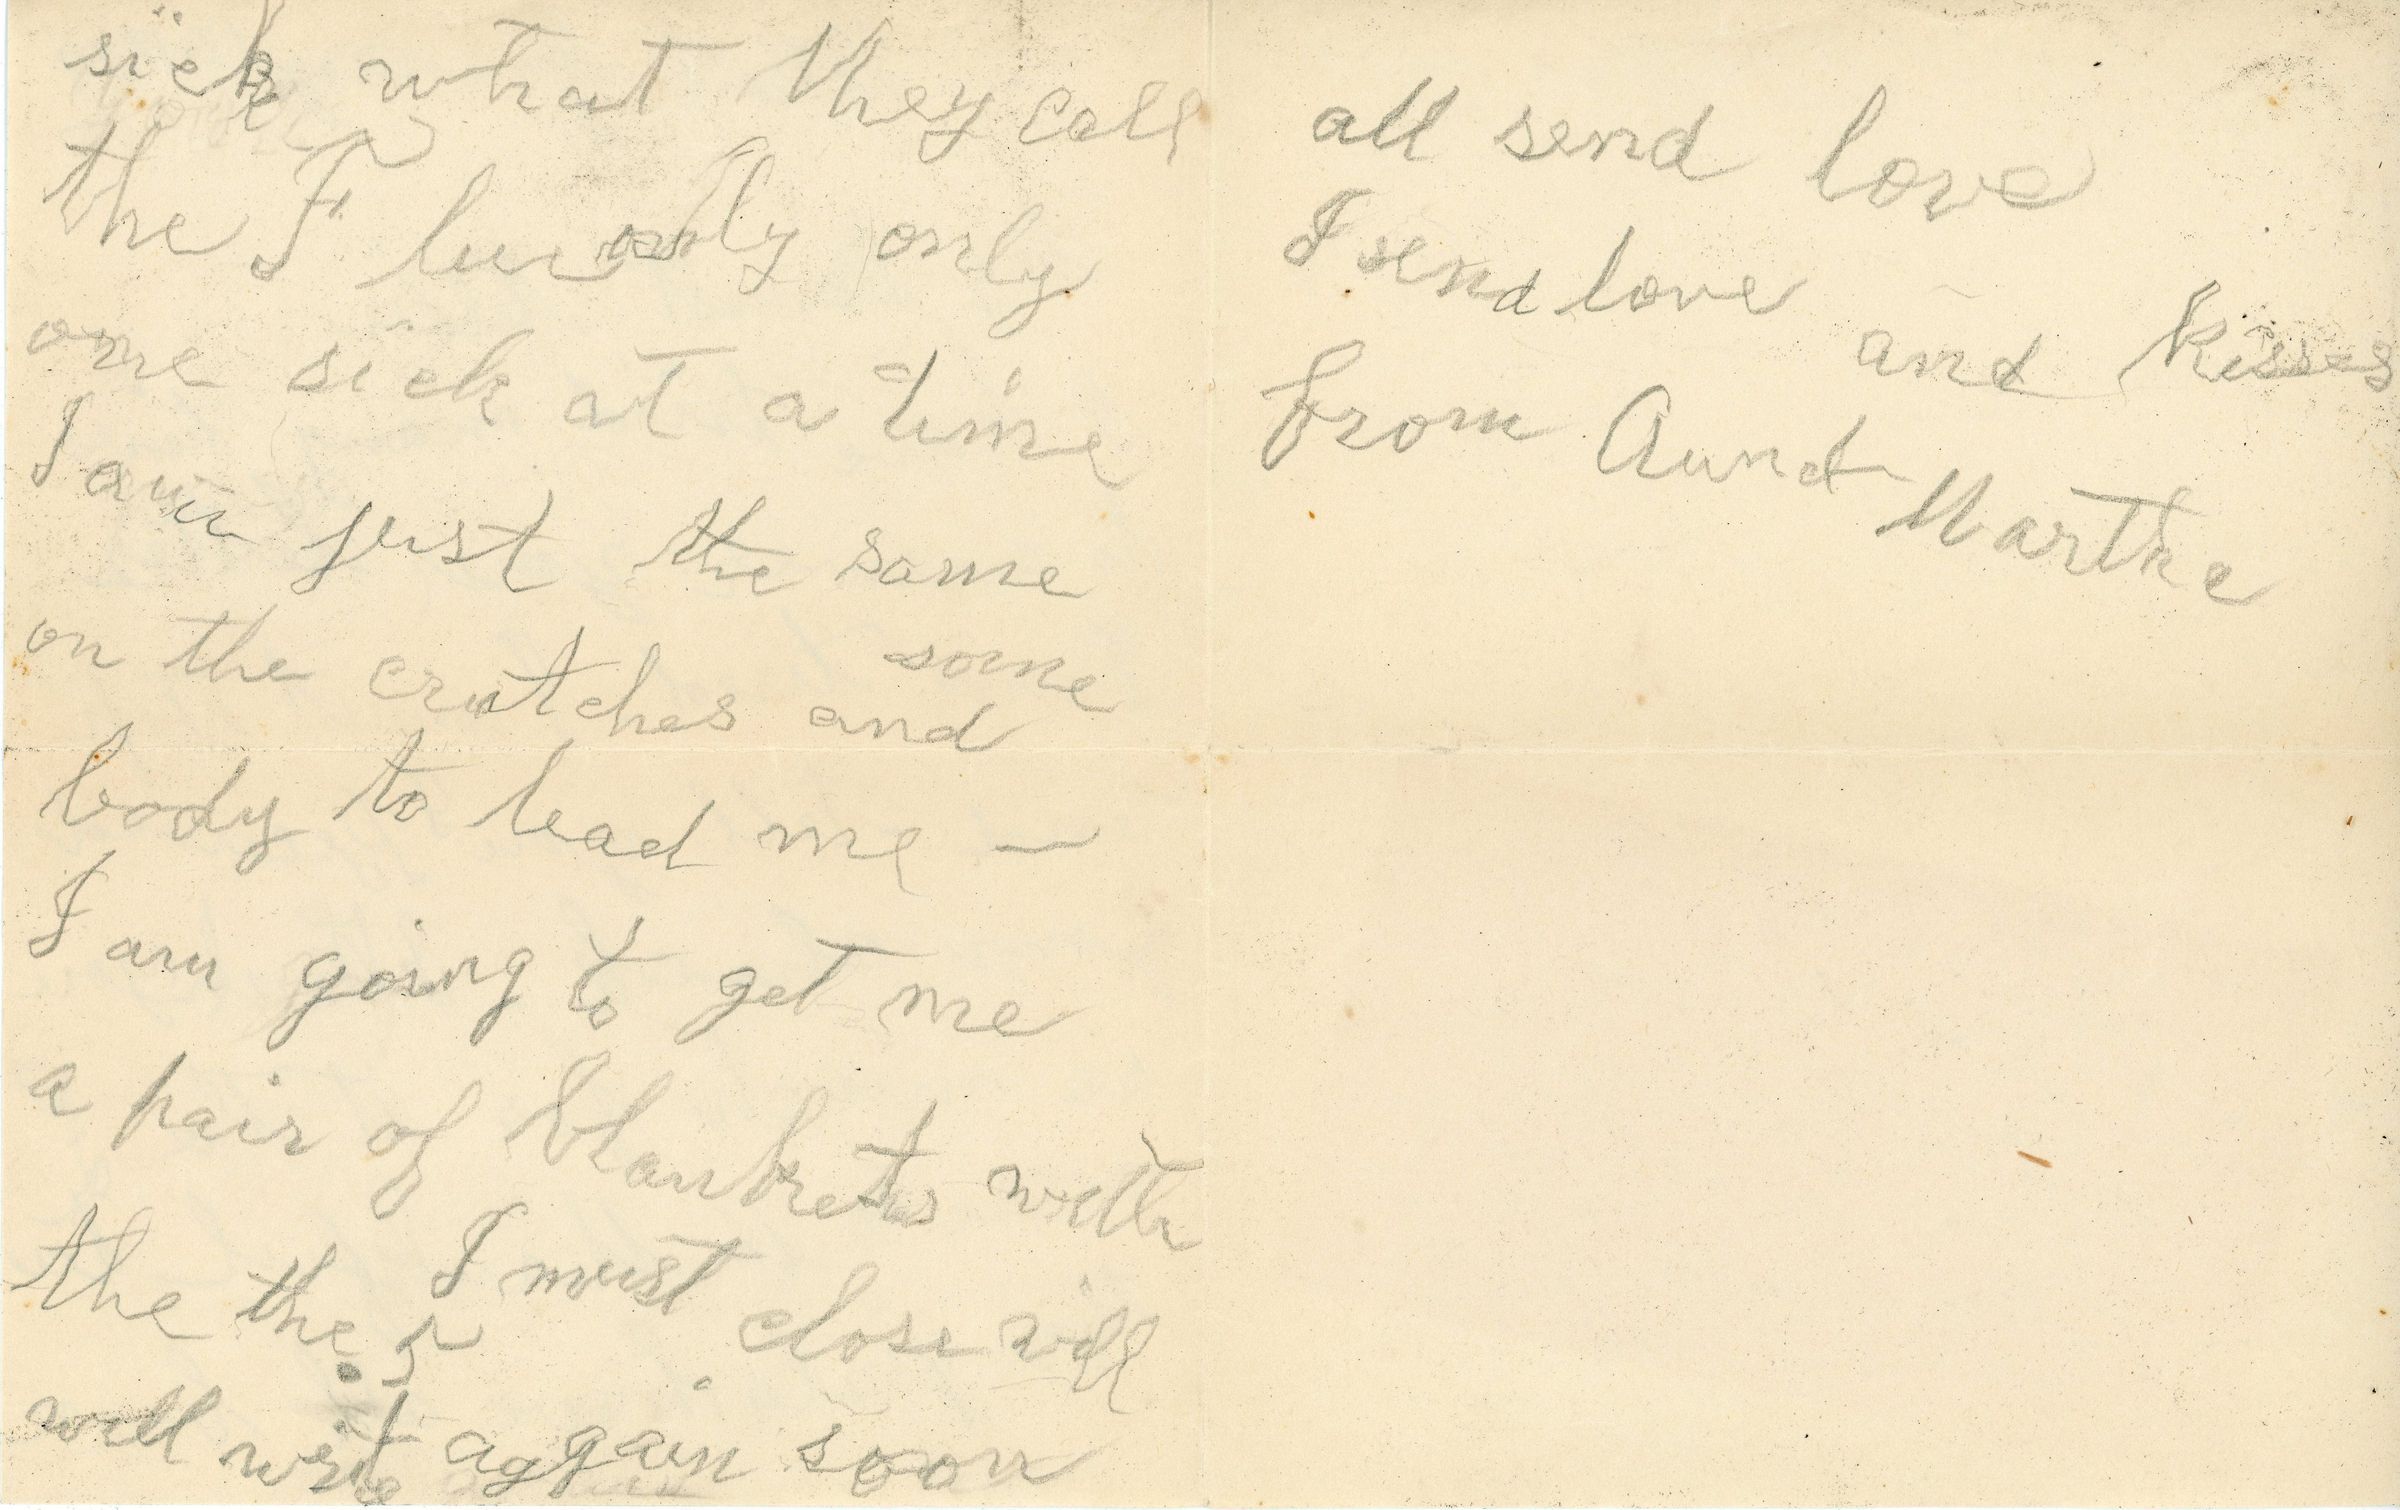 sick what they call
the Flu only only
one sick at a time
I am just the same
on the crutches and some
body to lead me —
I am going to get me
a pair of blankets with
the the 5 I must close will
will write aggain soon
all send love
I send love and kisses
from Aunt Marthe